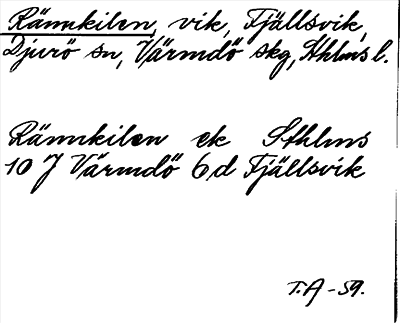 Rännkilen, vik, Fjällsvik,
Djurö sn, Värmdö skg, Sthlms l.
Rännkilen ek Sthlms
10 J Värmdö 6 d Fjällsvik
T.A -59.